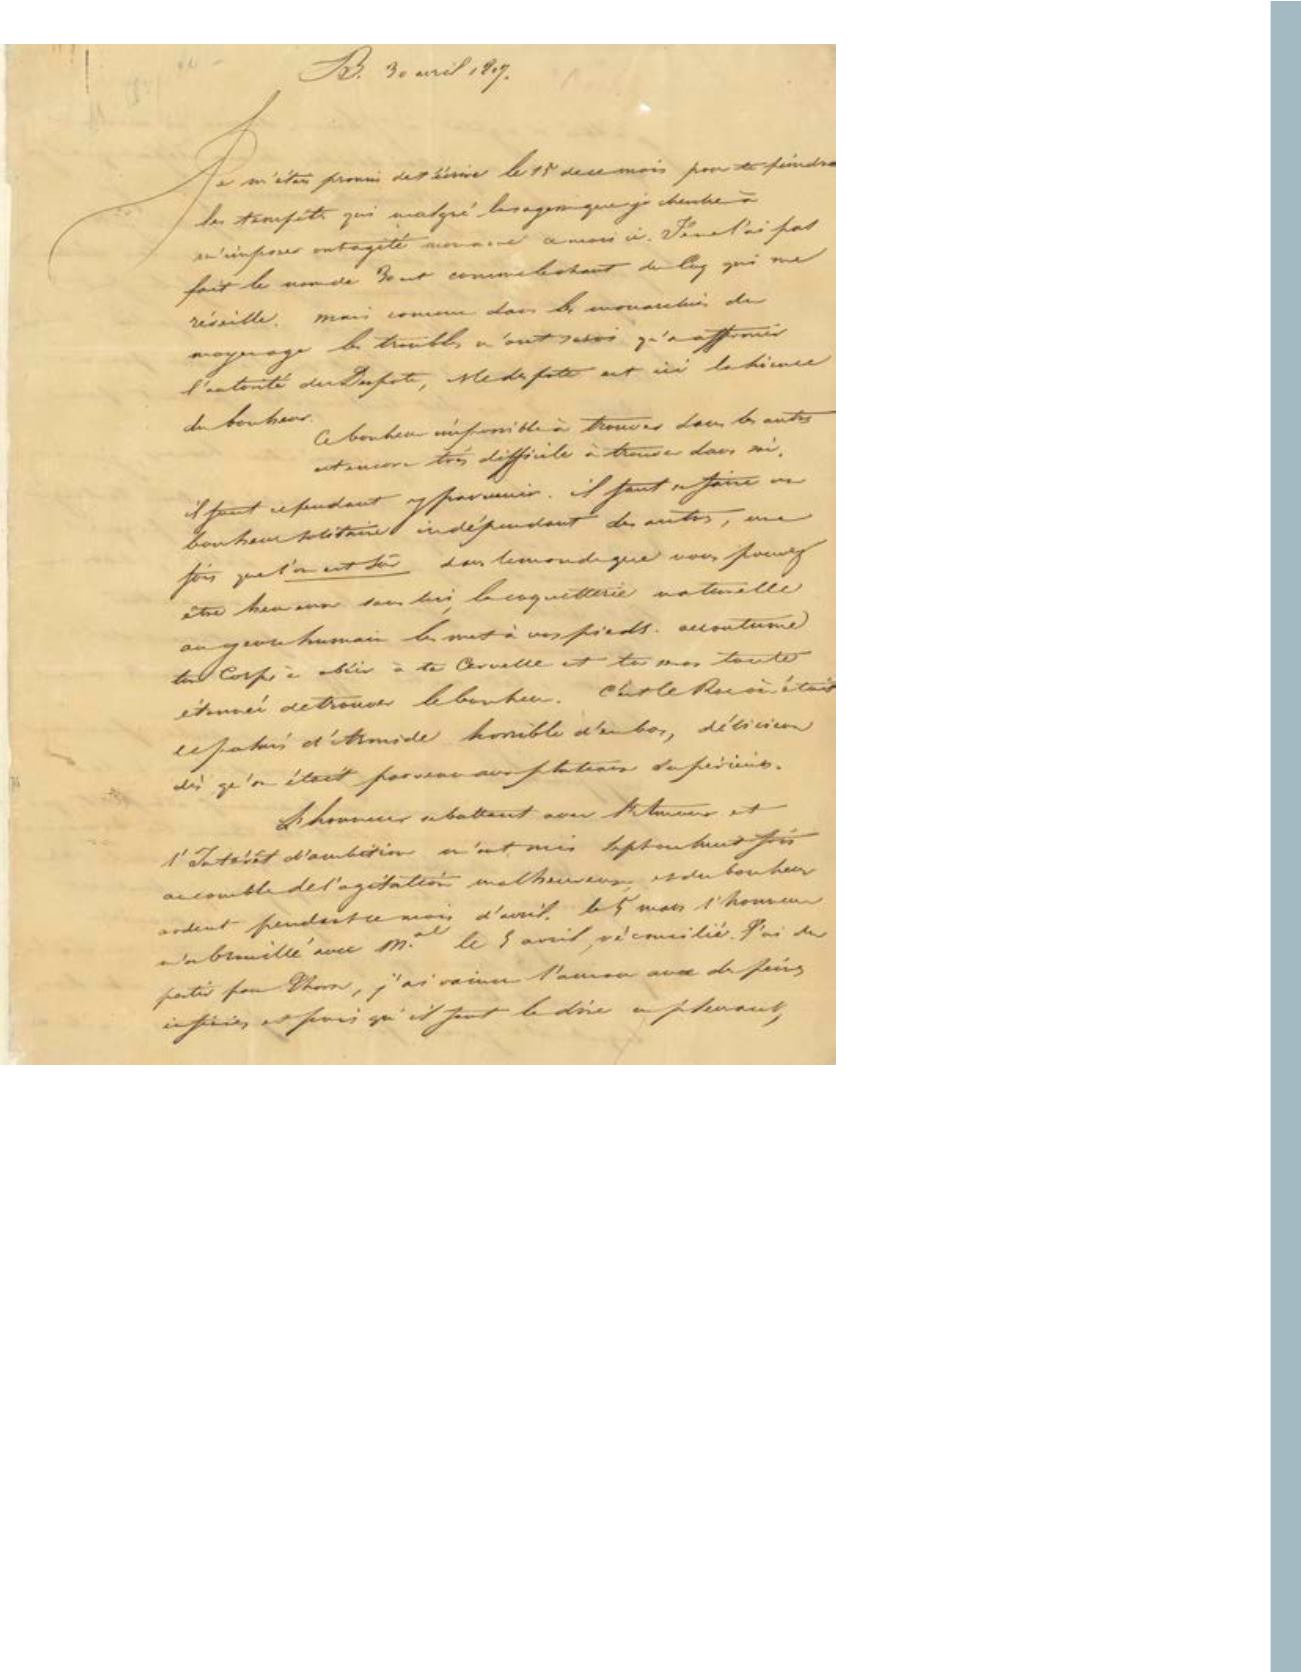 B. 30 avril 1807.
Je m'étais promis de t'écrire le 15 de ce mois pour te peindre
les tempêtes qui malgré la sagesse que je cherche à
m'imposer ont agité mon ce mois ci. Je ne l'ai pas
fait le nom de 30 est comme le chant du Coq qui me
réveille. mais comme dans les monarchies du
moyen age les troubles n'ont servi qu'à affermir
l'autorité du Despote, et le despote est ici la science
du bonheur.
Ce bonheur impossible à trouver dans les autres
est encore très difficile à trouver dans soi.
il faut cependant y parvenir. il faut se faire un
bonheur solitaire indépendant des autres, une
fois que l'on est sûr dans le monde que vous pouvez
être heureux sans lui, la coquetterie naturelle
au genre humain les met à vos pieds. accoutume
ton Corps à obéir à ta Cervelle et tu seras toute
étonnée de trouver le bonheur. C'est le Roc où était
le palais d'Armide horrible d'en bas, délicieux
dès qu'on était parvenu aux plateaux supérieurs.
L'honneur se battant avec l'Amour et
l'Intérêt d'ambition m'ont mis sept ou huit fois
au comble de l'agitation malheureuse, et du bonheur
ardent pendant ce mois d'avril. le 5 mars l'honneur
m'a brouillé avec M.al le 5 avril, réconcilié. J'ai dû
partir pour Thorn, j'ai vaincu l'amour avec des peines
infinies et puis qu'il faut le dire en pleurant,